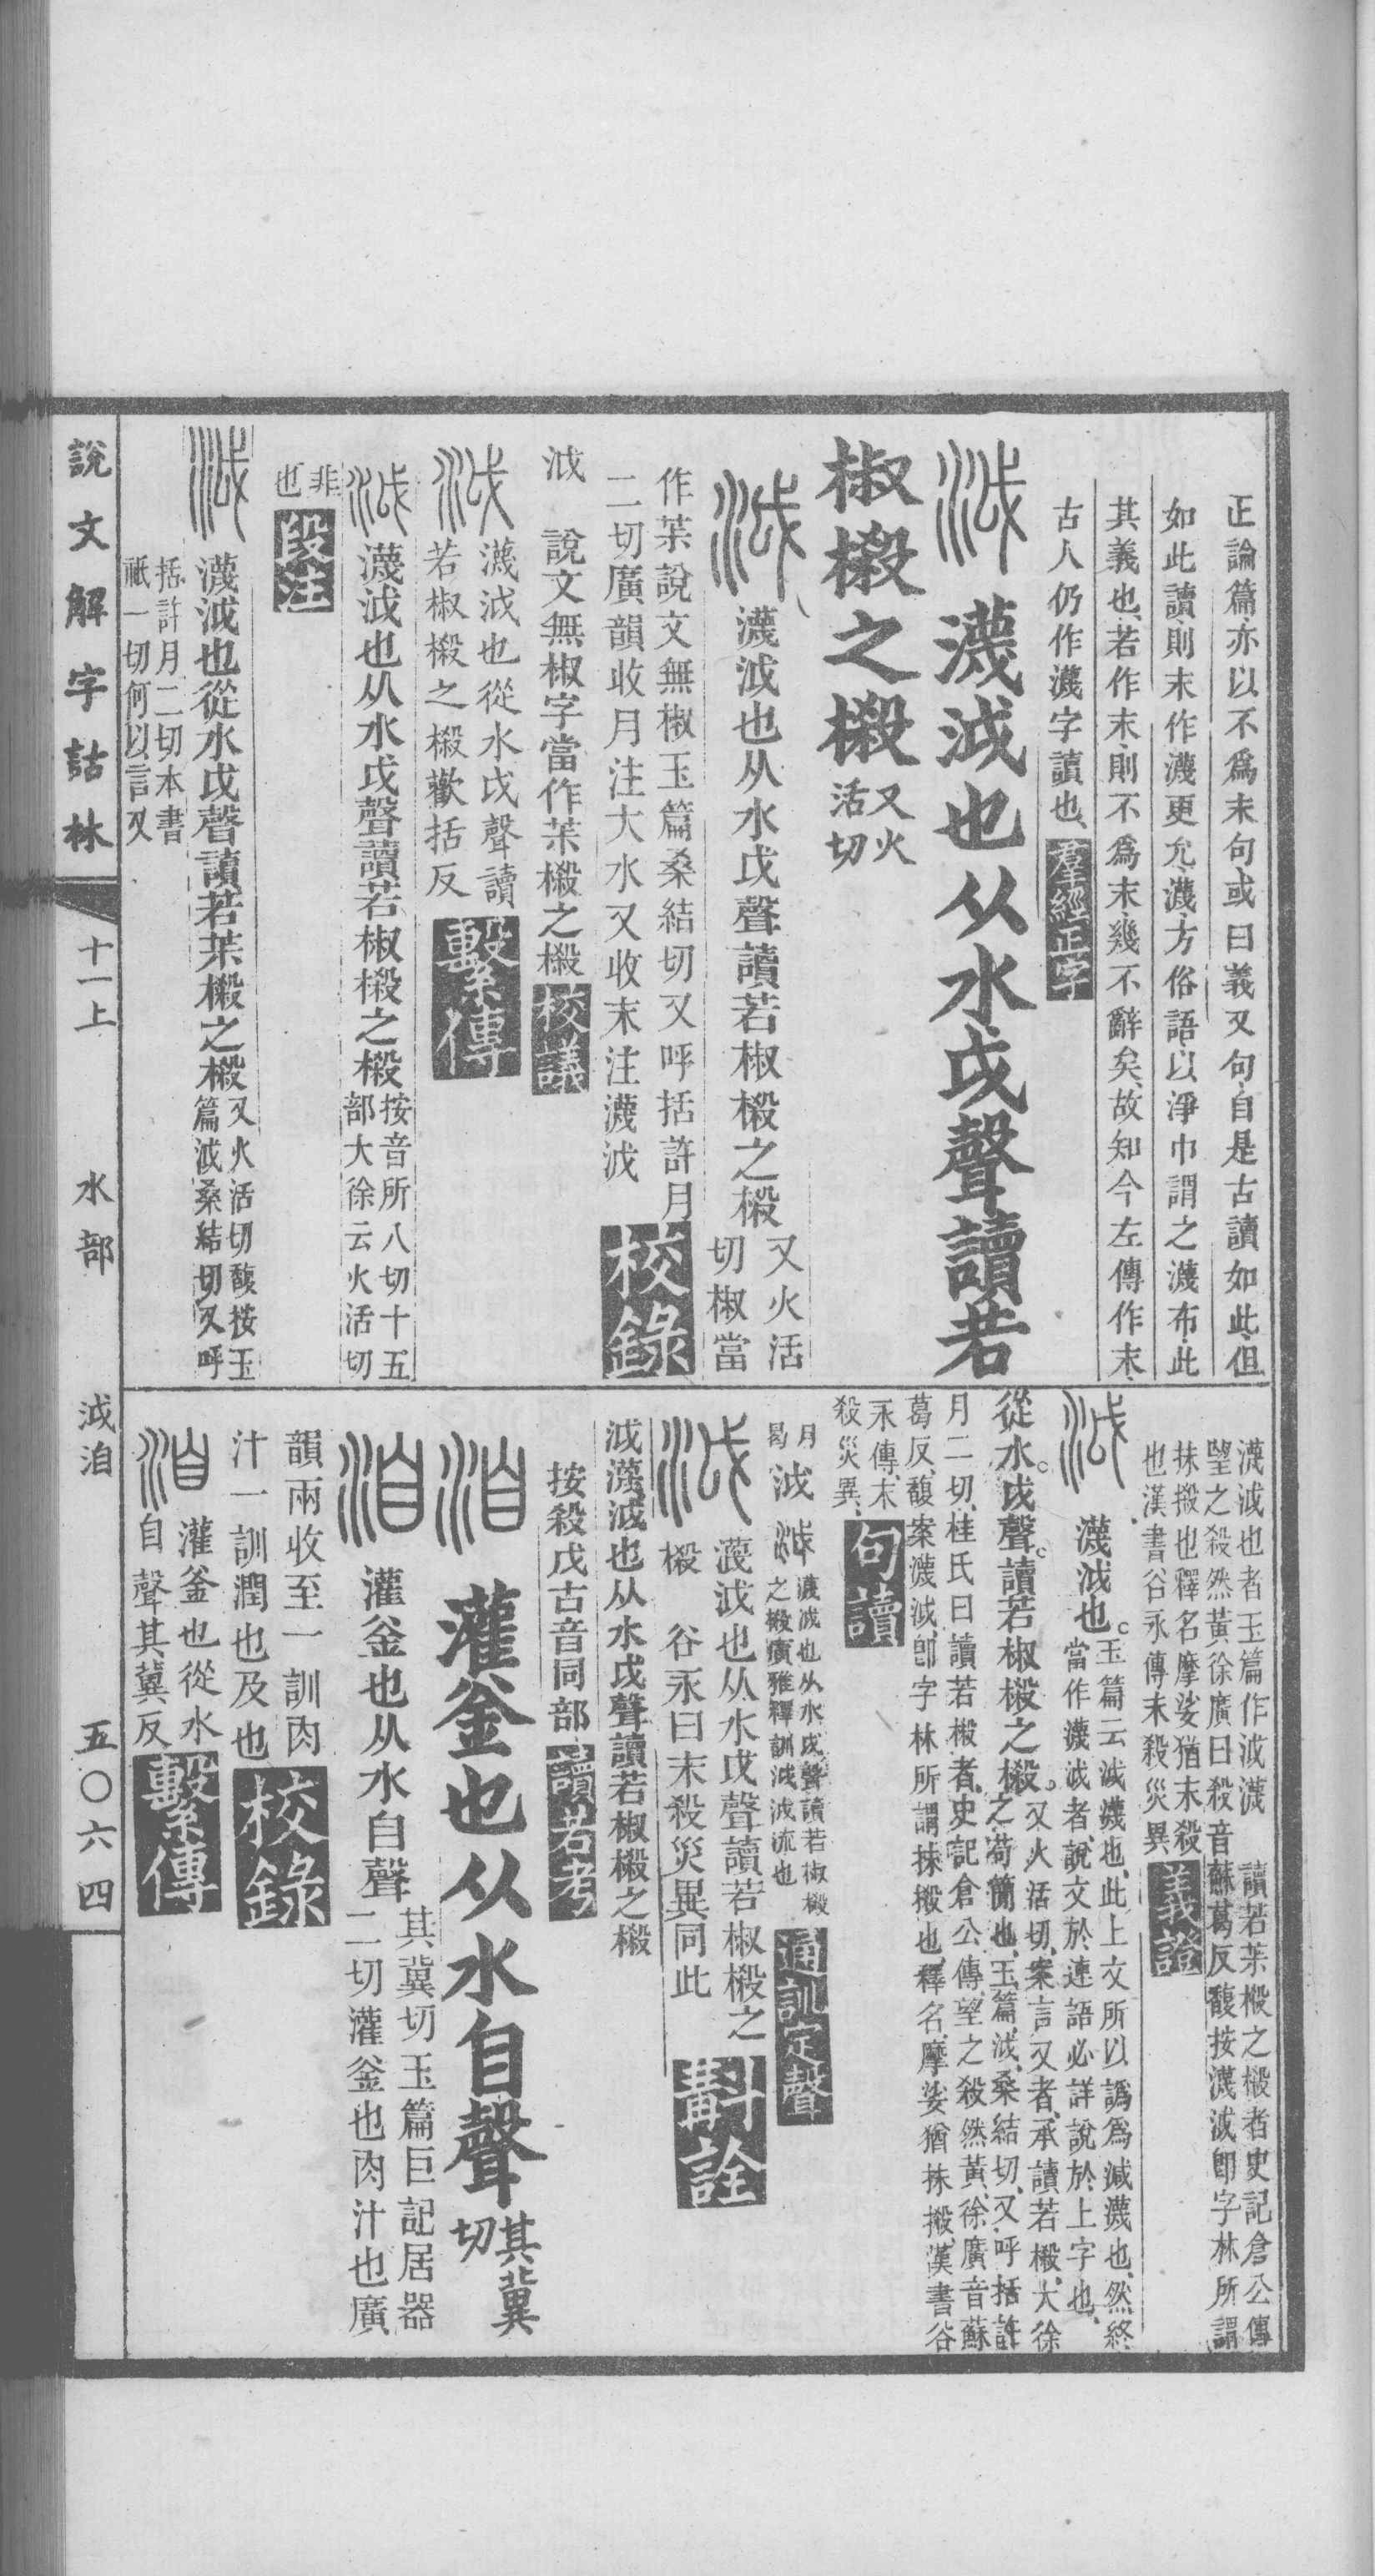 正論篇亦以不爲末句或曰義又句自是古讀如此但
如此讀則末作瀎更允瀎方俗語以淨巾謂之瀎布此
其義也若作末則不爲末幾不辭矣故知今左傳作末
古人仍作瀎字讀也羣經正字
瀎泧也从水戉聲讀若
椒樧之樧又火
活切
瀎泧也从水戉聲讀若椒樧之樧又火活
切椒當
作茮說文無椒玉篇桑結切又呼括許月
二切廣韻收月注大水又收末注瀎泧校錄
泧 說文無椒字當作茮樧之樧校議
瀎泧也從水戉聲讀
若椒樧之樧歡括反繫傳
瀎泧也从水戉聲讀若椒樧之樧按音所八切十五
部大徐云火活切
非
也段注
瀎泧也從水戉聲讀若茮樧之樧又火活切馥按玉
篇泧桑結切又呼
括許月二切本書
祇一切何以言又
瀎泧也者玉篇作泧瀎 讀若茮樧之樧者史記倉公傳
望之殺然黃徐廣曰殺音蘇葛反馥按瀎泧卽字林所謂
抹搬也釋名摩娑猶末殺
也漢書谷永傳末殺災異義證
瀎泧也玉篇云泧瀎也此上文所以譌爲減瀎也然終
當作瀎泧者說文於連語必詳說於上字也
從水戉聲讀若椒樧之樧又火活切案言又者承讀若樧大徐
之苟簡也玉篇泧桑結切又呼括許
月二切桂氏曰讀若樧者史記倉公傳望之殺然黃徐廣音蘇
葛反馥案瀎泧卽字林所謂抹搬也釋名摩娑猶抹搬漢書谷
永傳末
殺災異句讀
月
曷泧瀎泧也从水戉聲讀若椒樧
之樧廣雅釋訓泧泧流也通訓定聲
瀎泧也从水戉聲讀若椒樧之
樧 谷永曰末殺災異同此斠詮
泧瀎泧也从水戉聲讀若椒樧之樧
按殺戉古音同部讀若考
灌釜也从水自聲其冀
切
灌釜也从水自聲其冀切玉篇巨記居器
二切灌釜也肉汁也廣
韻兩收至一訓肉
汁一訓潤也及也校錄
灌釜也從水
自聲其冀反繫傳
說文解字詁林 十一上 水部 泧洎 五〇六四